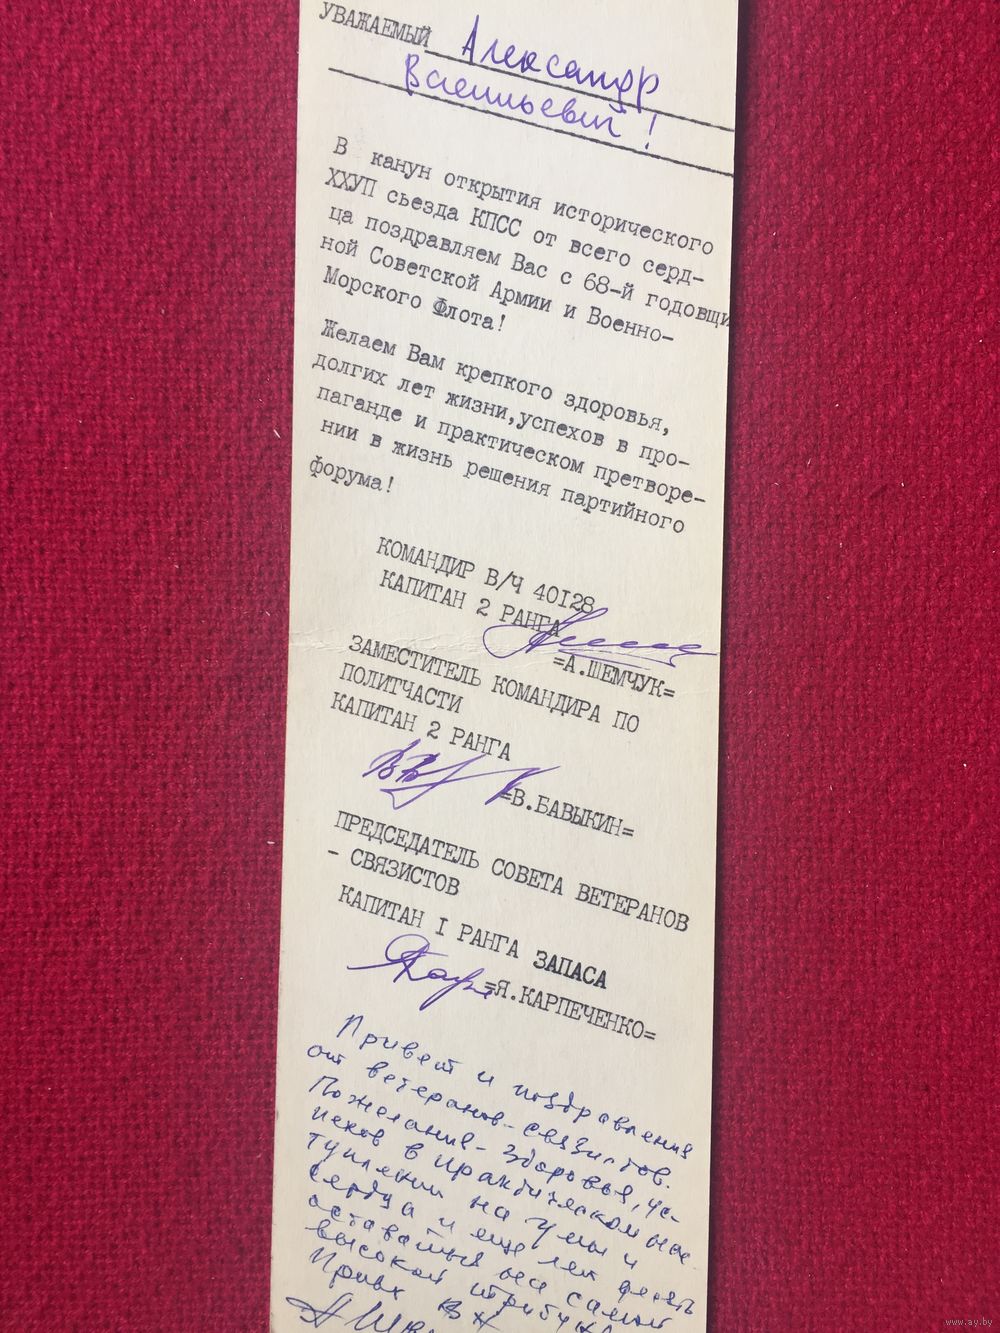 УВАЖАЕМЫЙ Александр
Васильевич!
В канун открытия исторического
ХХУП сьезда КПСС от всего серд-
ца поздравляем Вас с 68-й годовщи
ной Советской Армии и Военно-
Морского Флота!
Желаем Вам крепкого здоровья,
долгих лет жизни,успехов в про-
паганде и практическом претворе-
нии в жизнь решения партийного
форума!
КОМАНДИР В/Ч 40I28
КАПИТАН 2 РАНГА
=А.ШЕМЧУК=
ЗАМЕСТИТЕЛЬ КОМАНДИРА ПО
ПОЛИТЧАСТИ
КАПИТАН 2 РАНГА
=В.БАВЫКИН=
ПРЕДСЕДАТЕЛЬ СОВЕТА ВЕТЕРАНОВ
- СВЯЗИСТОВ
КАПИТАН I РАНГА ЗАПАСА
=Я.КАРПЕЧЕНКО=
Привет и поздравления
от ветеранов-связистов.
Пожелания - здоровья, ус-
пехов в практическом нас-
туплении на умы и
сердца и еще лет десять
оставаться на самой
высокой трибуне
www.ay.by